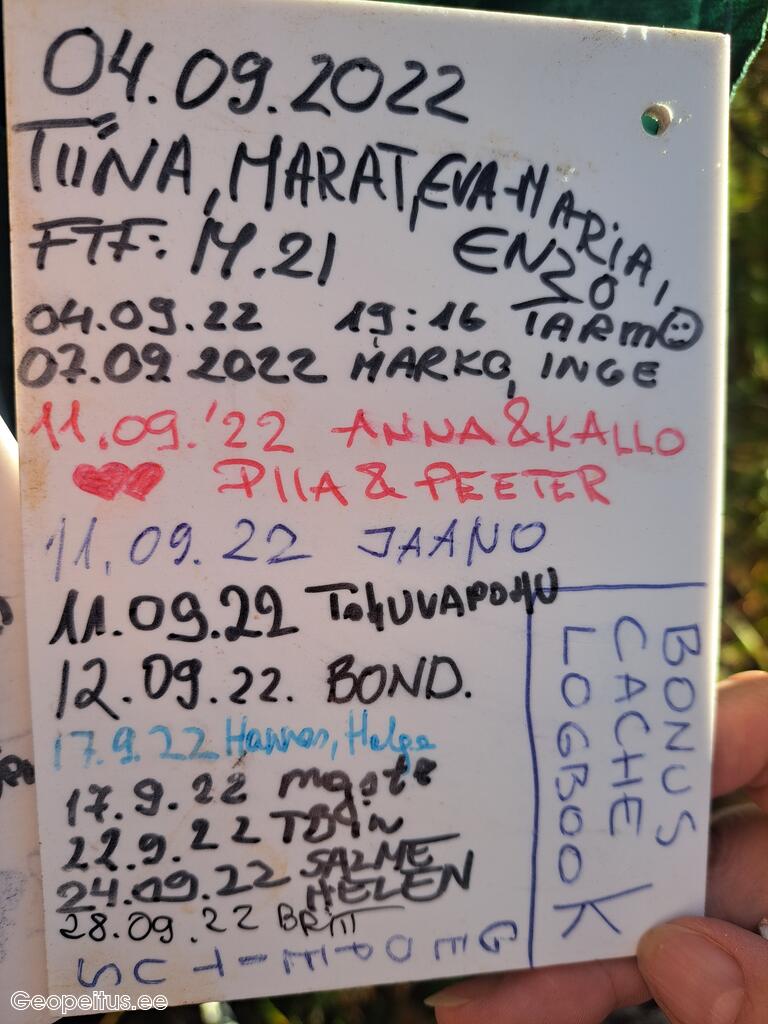 04.09.2022
TIINA, MARAT, EVA-MARIA,
ENZO
FTF: M.21
04.09.22 19:16 TARMO
07.09 2022 MARKO, INGE
11.09.'22 ANNA & KALLO
PIIA & PEETER
11.09.22 JAANO
11.09.22 TOHUVAPOHU
12.09.22. BOND.
17.9.22 Hannes, Helge
17.9.22
22.9.22
24.09.22 SALME
HELEN
28.09.22 BRITT
BONUS
CACHE
LOGBOOK
GEOPEITUS
Geopeitus.ee